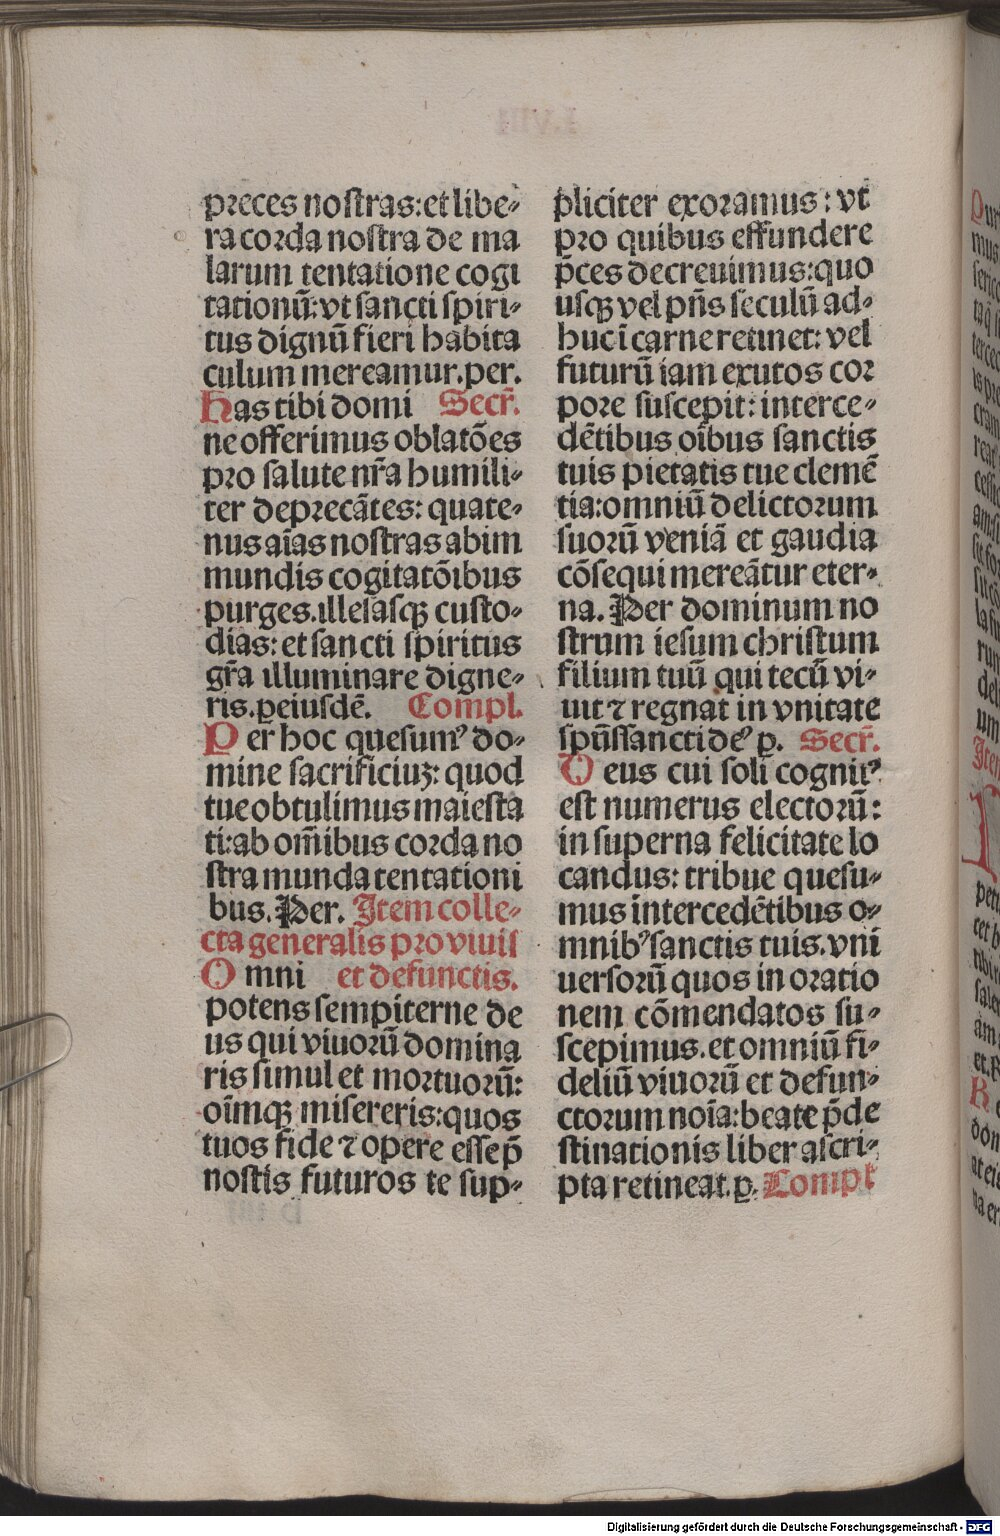 preces nostras: et libe-
ra corda nostra de ma
larum tentatione cogi
tationū: vt sancti spiri-
tus dignū fieri habita
culum mereamur. per.
Has tibi domi Secr̄.
ne offerimus oblatōes
pro salute nr̄a humili-
ter deprecātes: quate-
nus aīas nostras ab im
mundis cogitatōıbus
purges. illesasqꝫ custo-
dias: et sancti spiritus
gr̄a illuminare digne-
ris. ꝑ eiusdē. Compl.
Per hoc quesumꝰ do-
mine sacrificiuꝫ: quod
tue obtulimus maiesta
ti: ab om̄ibus corda no
stra munda tentationi
bus. Per. Item colle-
cta generalis pro viuis
Omni et defunctis.
potens sempiterne de
us qui viuorū domina
ris simul et mortuorū:
oīmqꝫ misereris: quos
tuos fide ⁊ opere esse p̄
nostis futuros te sup-
pliciter exoramus: vt
pro quibus effundere
p̄ces decreuimus: quo
usqꝫ vel pn̄s seculū ad-
huc ī carne retinet: vel
futurū iam exutos cor
pore suscepit: interce-
dētibus oībus sanctis
tuis pietatis tue clemē
tia: omniū delictorum
suorū veniā et gaudia
cōsequi mereātur eter-
na. Per dominum no
strum iesum christum
filium tuū qui tecū vi-
uit ⁊ regnat in vnitate
spūssancti deꝰ ꝑ. Secr̄.
Deus cui soli cognitꝰ
est numerus electorū:
in superna felicitate lo
candus: tribue quesu-
mus intercedētibus o-
mnibꝰ sanctis tuis. vni
uersorū quos in oratio
nem cōmendatos su-
scepimus. et omniū fi-
deliū viuorū et defun-
ctorum noīa: beate p̄de
stinationis liber ascri-
pta retineat. ꝑ. Compl̄
Digitalisierung gefördert durch die Deutsche Forschungsgemeinschaft - DFG